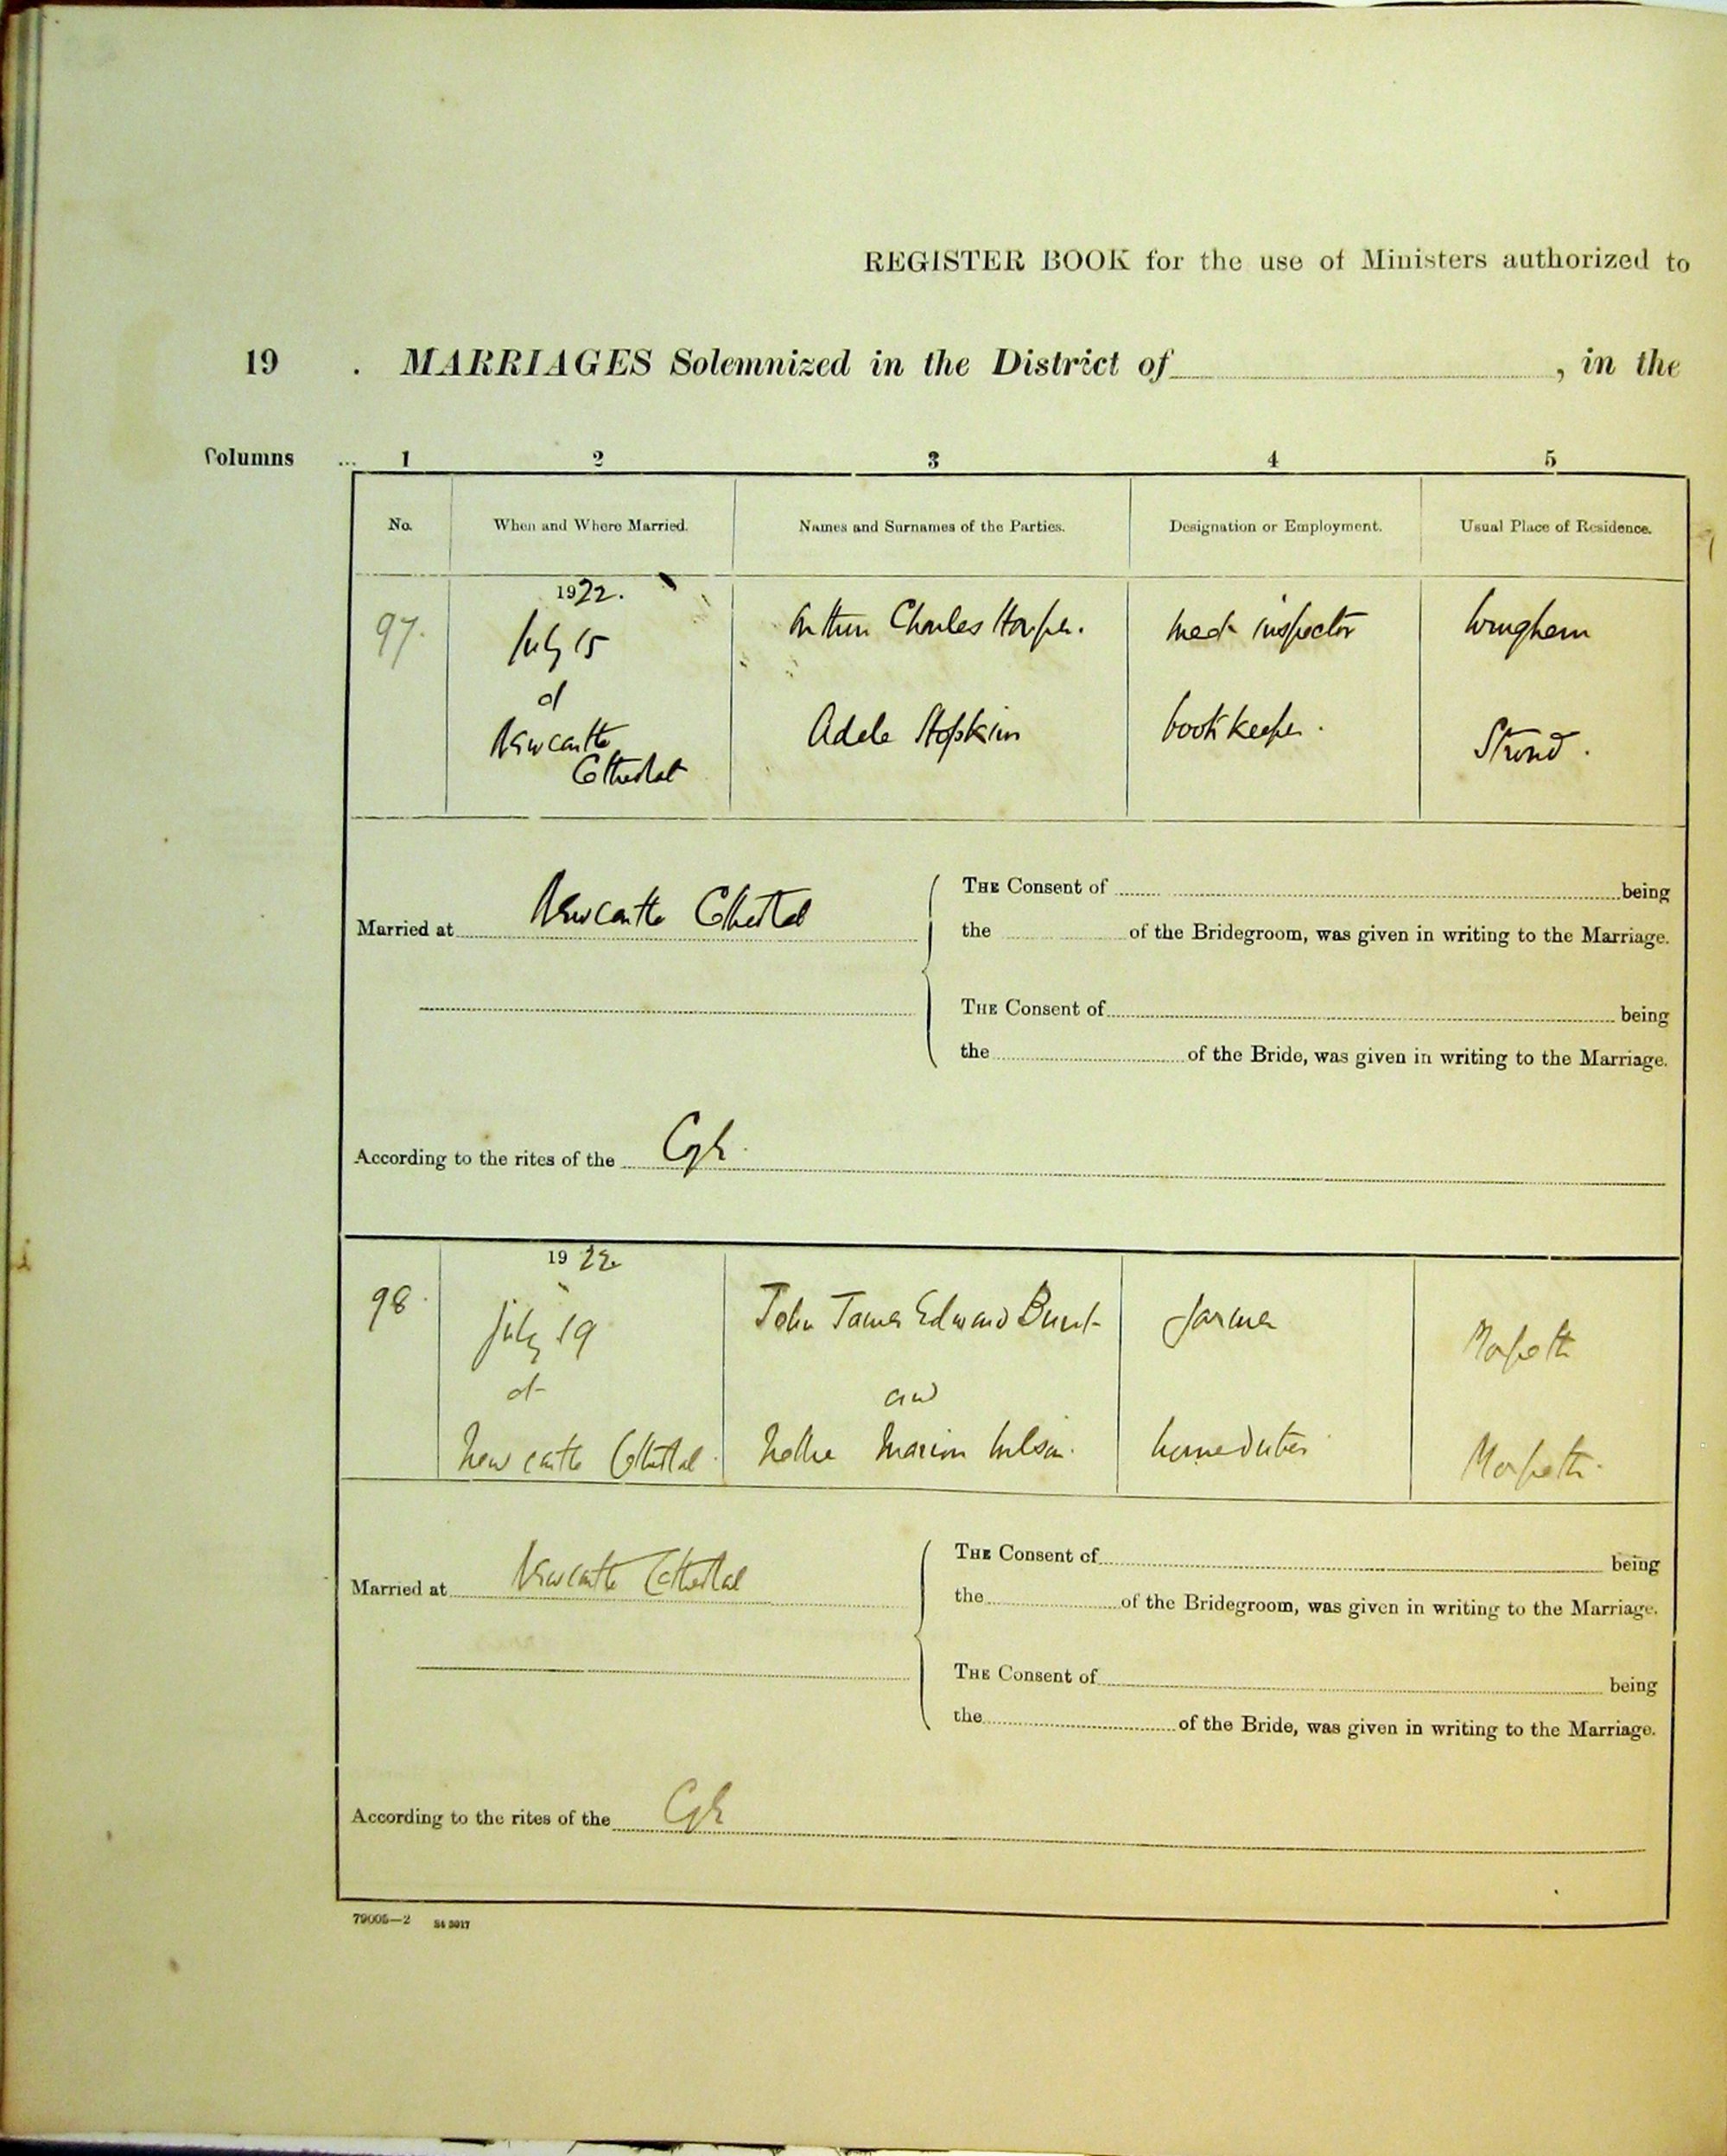 REGISTER BOOK for the use of Ministers authorized to
19 . MARRIAGES Solemnized in the District of , in the
Columns ... 1 2 3 4 5
No. When and Where Married. Names and Surnames of the Parties. Designation or Employment. Usual Place of Residence.
1922.
97. July 15 Arthur Charles Harper. meat inspector Wingham
at
Newcastle Adele Hopkins bookkeeper. Stroud.
Cathedral
THE Consent of being
Married at Newcastle Cathedral the of the Bridegroom, was given in writing to the Marriage.
THE Consent of being
the of the Bride, was given in writing to the Marriage.
According to the rites of the
1922
98. July 19 John James Edward Bunt farmer Morpeth
at and
Newcastle Cathedral. Nellie Marion Wilson. home duties Morpeth.
THE Consent of being
Married at Newcastle Cathedral the of the Bridegroom, was given in writing to the Marriage.
THE Consent of being
the of the Bride, was given in writing to the Marriage.
According to the rites of the
79005—2 St 5017